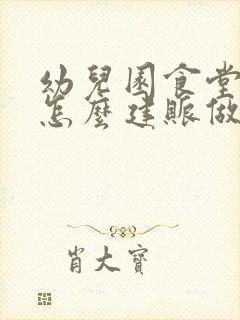 幼兒園食堂
怎麼建賬做
肖大寶